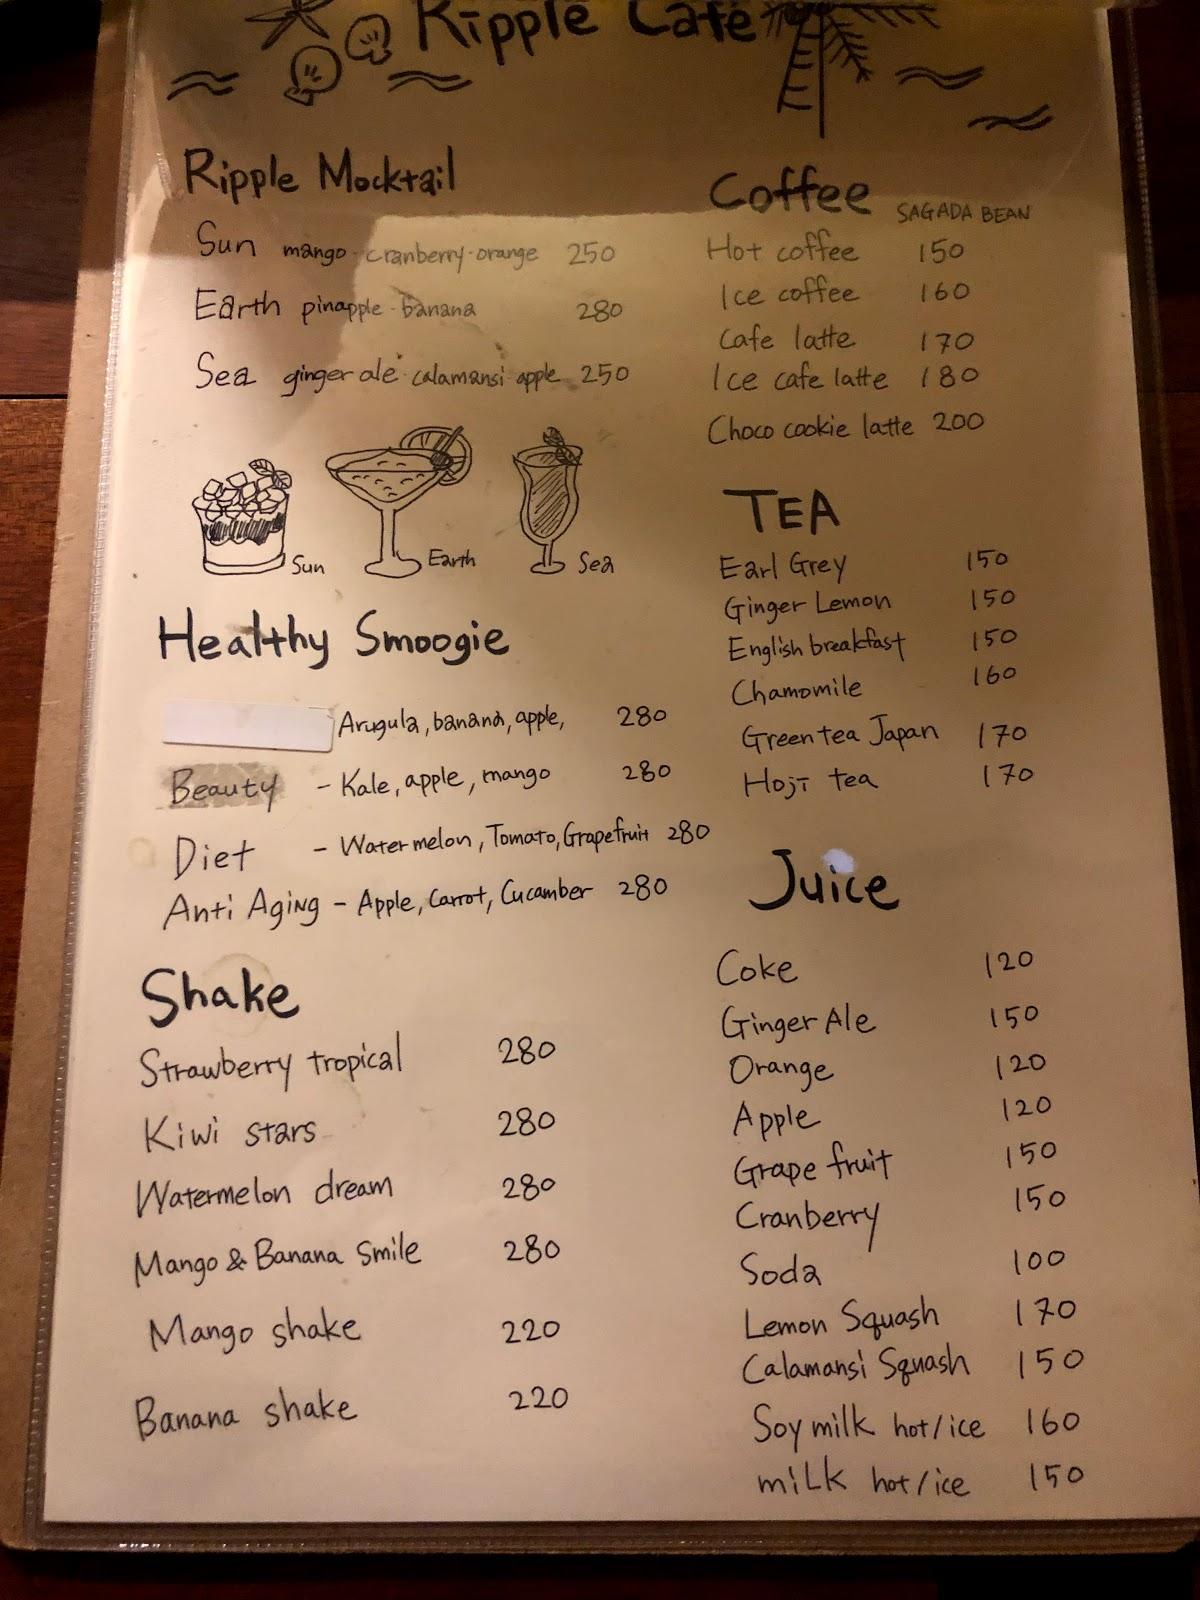 Ripple Café
Ripple Mocktail
Sun mango·cranberry·orange 250
Earth pinapple·banana 280
Sea ginger ale·calamansi·apple 250
Sun
Earth
Sea
Healthy Smoogie
Arugula, banana, apple, 280
Beauty - Kale, apple, mango 280
Diet - Watermelon, Tomato, Grapefruit 280
Anti Aging - Apple, Carrot, Cucamber 280
Shake
Strawberry tropical 280
Kiwi stars 280
Watermelon dream 280
Mango & Banana smile 280
Mango shake 220
Banana shake 220
Coffee SAGADA BEAN
Hot coffee 150
Ice coffee 160
Cafe latte 170
Ice cafe latte 180
Choco cookie latte 200
TEA
Earl Grey 150
Ginger Lemon 150
English breakfast 150
Chamomile 160
Green tea Japan 170
Hoji tea 170
Juice
Coke 120
Ginger Ale 150
Orange 120
Apple 120
Grape fruit 150
Cranberry 150
Soda 100
Lemon Squash 170
Calamansi Squash 150
Soy milk hot/ice 160
miLk hot/ice 150